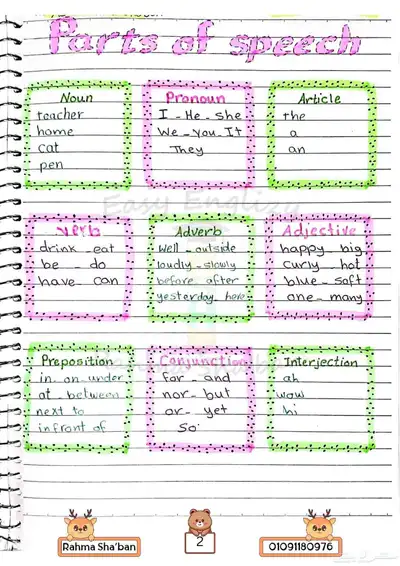 Parts of speech
Noun
teacher
home
cat
pen
Pronoun
I - He - she
We - You - It
They
Article
the
a
an
Easy English
Verb
drink - eat
be - do
have - can
Adverb
Well - outside
loudly - slowly
before - after
yesterday - here
Adjective
happy - big
curly - hot
blue - soft
one - many
Preposition
in - on - under
at - between
next to
in front of
Conjunction
for - and
nor - but
or - yet
So
Interjection
ah
wow
hi
Rahma Sha'ban
2
01091180976